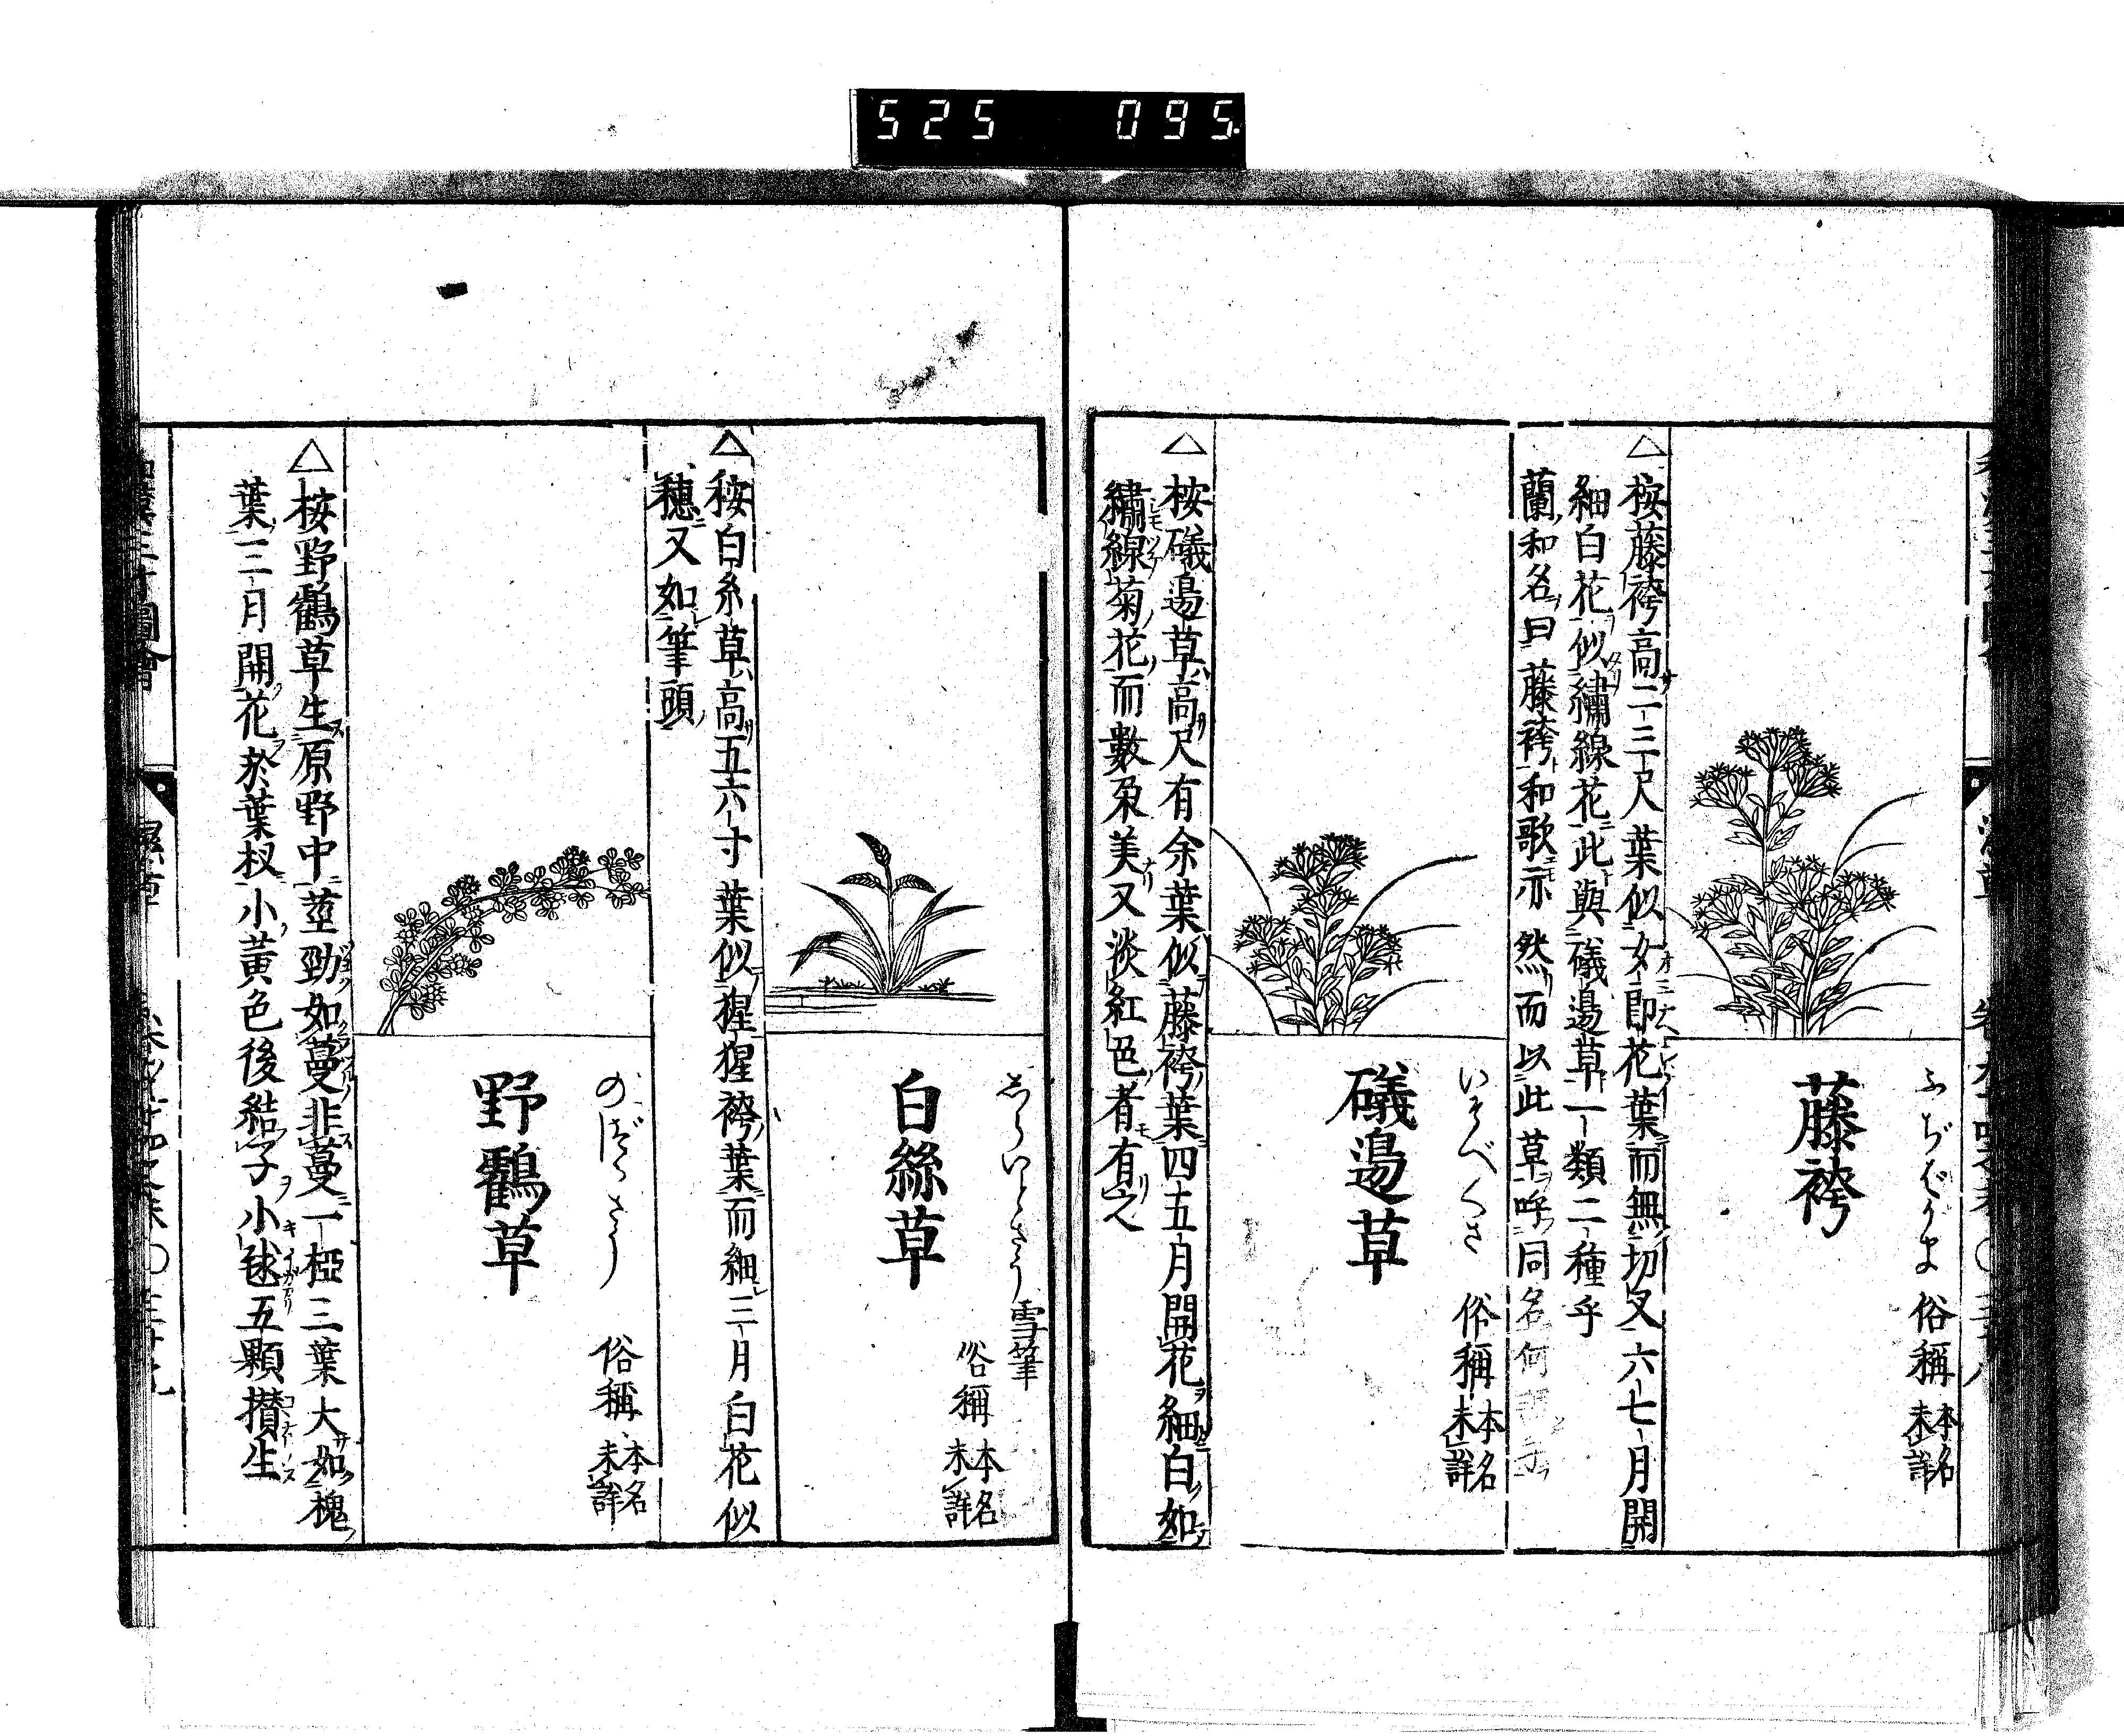 525 095
藤袴
ふぢばかま
俗稱
本名
未詳
△按藤袴高二三尺葉似女郎花葉而無切叉六七月開
細白花似繡線花此與礒邉草一類二種乎
蘭和名曰藤袴和歌亦然而以此草呼同名何
礒邉草
いそべくさ
俗稱
本名
未詳
△按礒邉草高尺有余葉似藤袴葉四五月開花細白如
繡線菊花而數朶美又淡紅色者有之
白絲草
しらいとさう
雪筆
俗稱
本名
未詳
△按白糸草高五六寸葉似猩猩袴葉而細三月白花似
穗又如筆頭
野鸛草
俗稱
本名
未詳
△按野鸛草生原野中莖勁如蔓非蔓一椏三葉大如槐
葉三月開花於葉杈小黃色後結子小毬五顆攅生